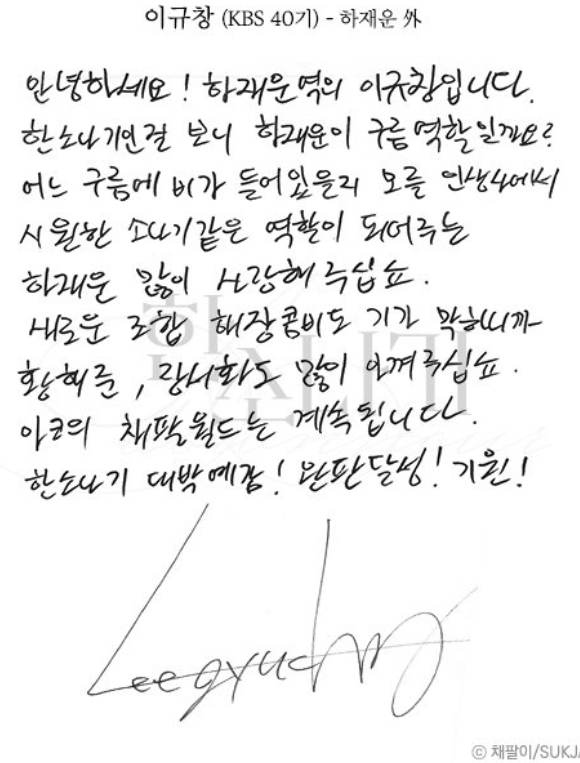 이규창 (KBS 40기) - 하재운 外
안녕하세요! 하재운역의 이규창입니다.
한소나기인걸 보니 하재운이 구름역할일까요?
어느 구름에 비가 들어있을지 모를 인생사에서
시원한 소나기같은 역할이 되어주는
하재운 많이 사랑해주십쇼.
새로운 조합 해장콤비도 기가 막히니까
황해준, 강시화도 많이 아껴주십쇼.
아코의 채팔월드는 계속됩니다.
한소나기 대박예감! 완판달성! 기원!
한소나기
Leegyuchang
© 채팔이/SUKJA